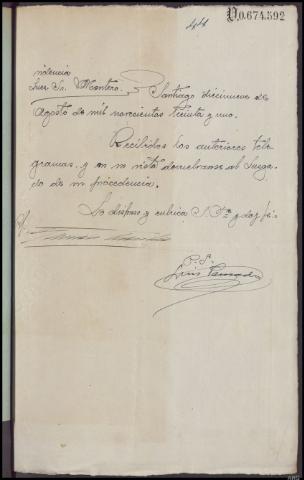 44
D0.674.592
Providencia
Juez Sr. Montero. Santiago diecinueve de
Agosto de mil novecientos treinta y uno.
Recibidos los anteriores tele
gramas y en su vista devuelvase al Juzga
do de su procedencia.
Lo dispuso y rubrica S. Sª y doy fe.
P. S.
Luis